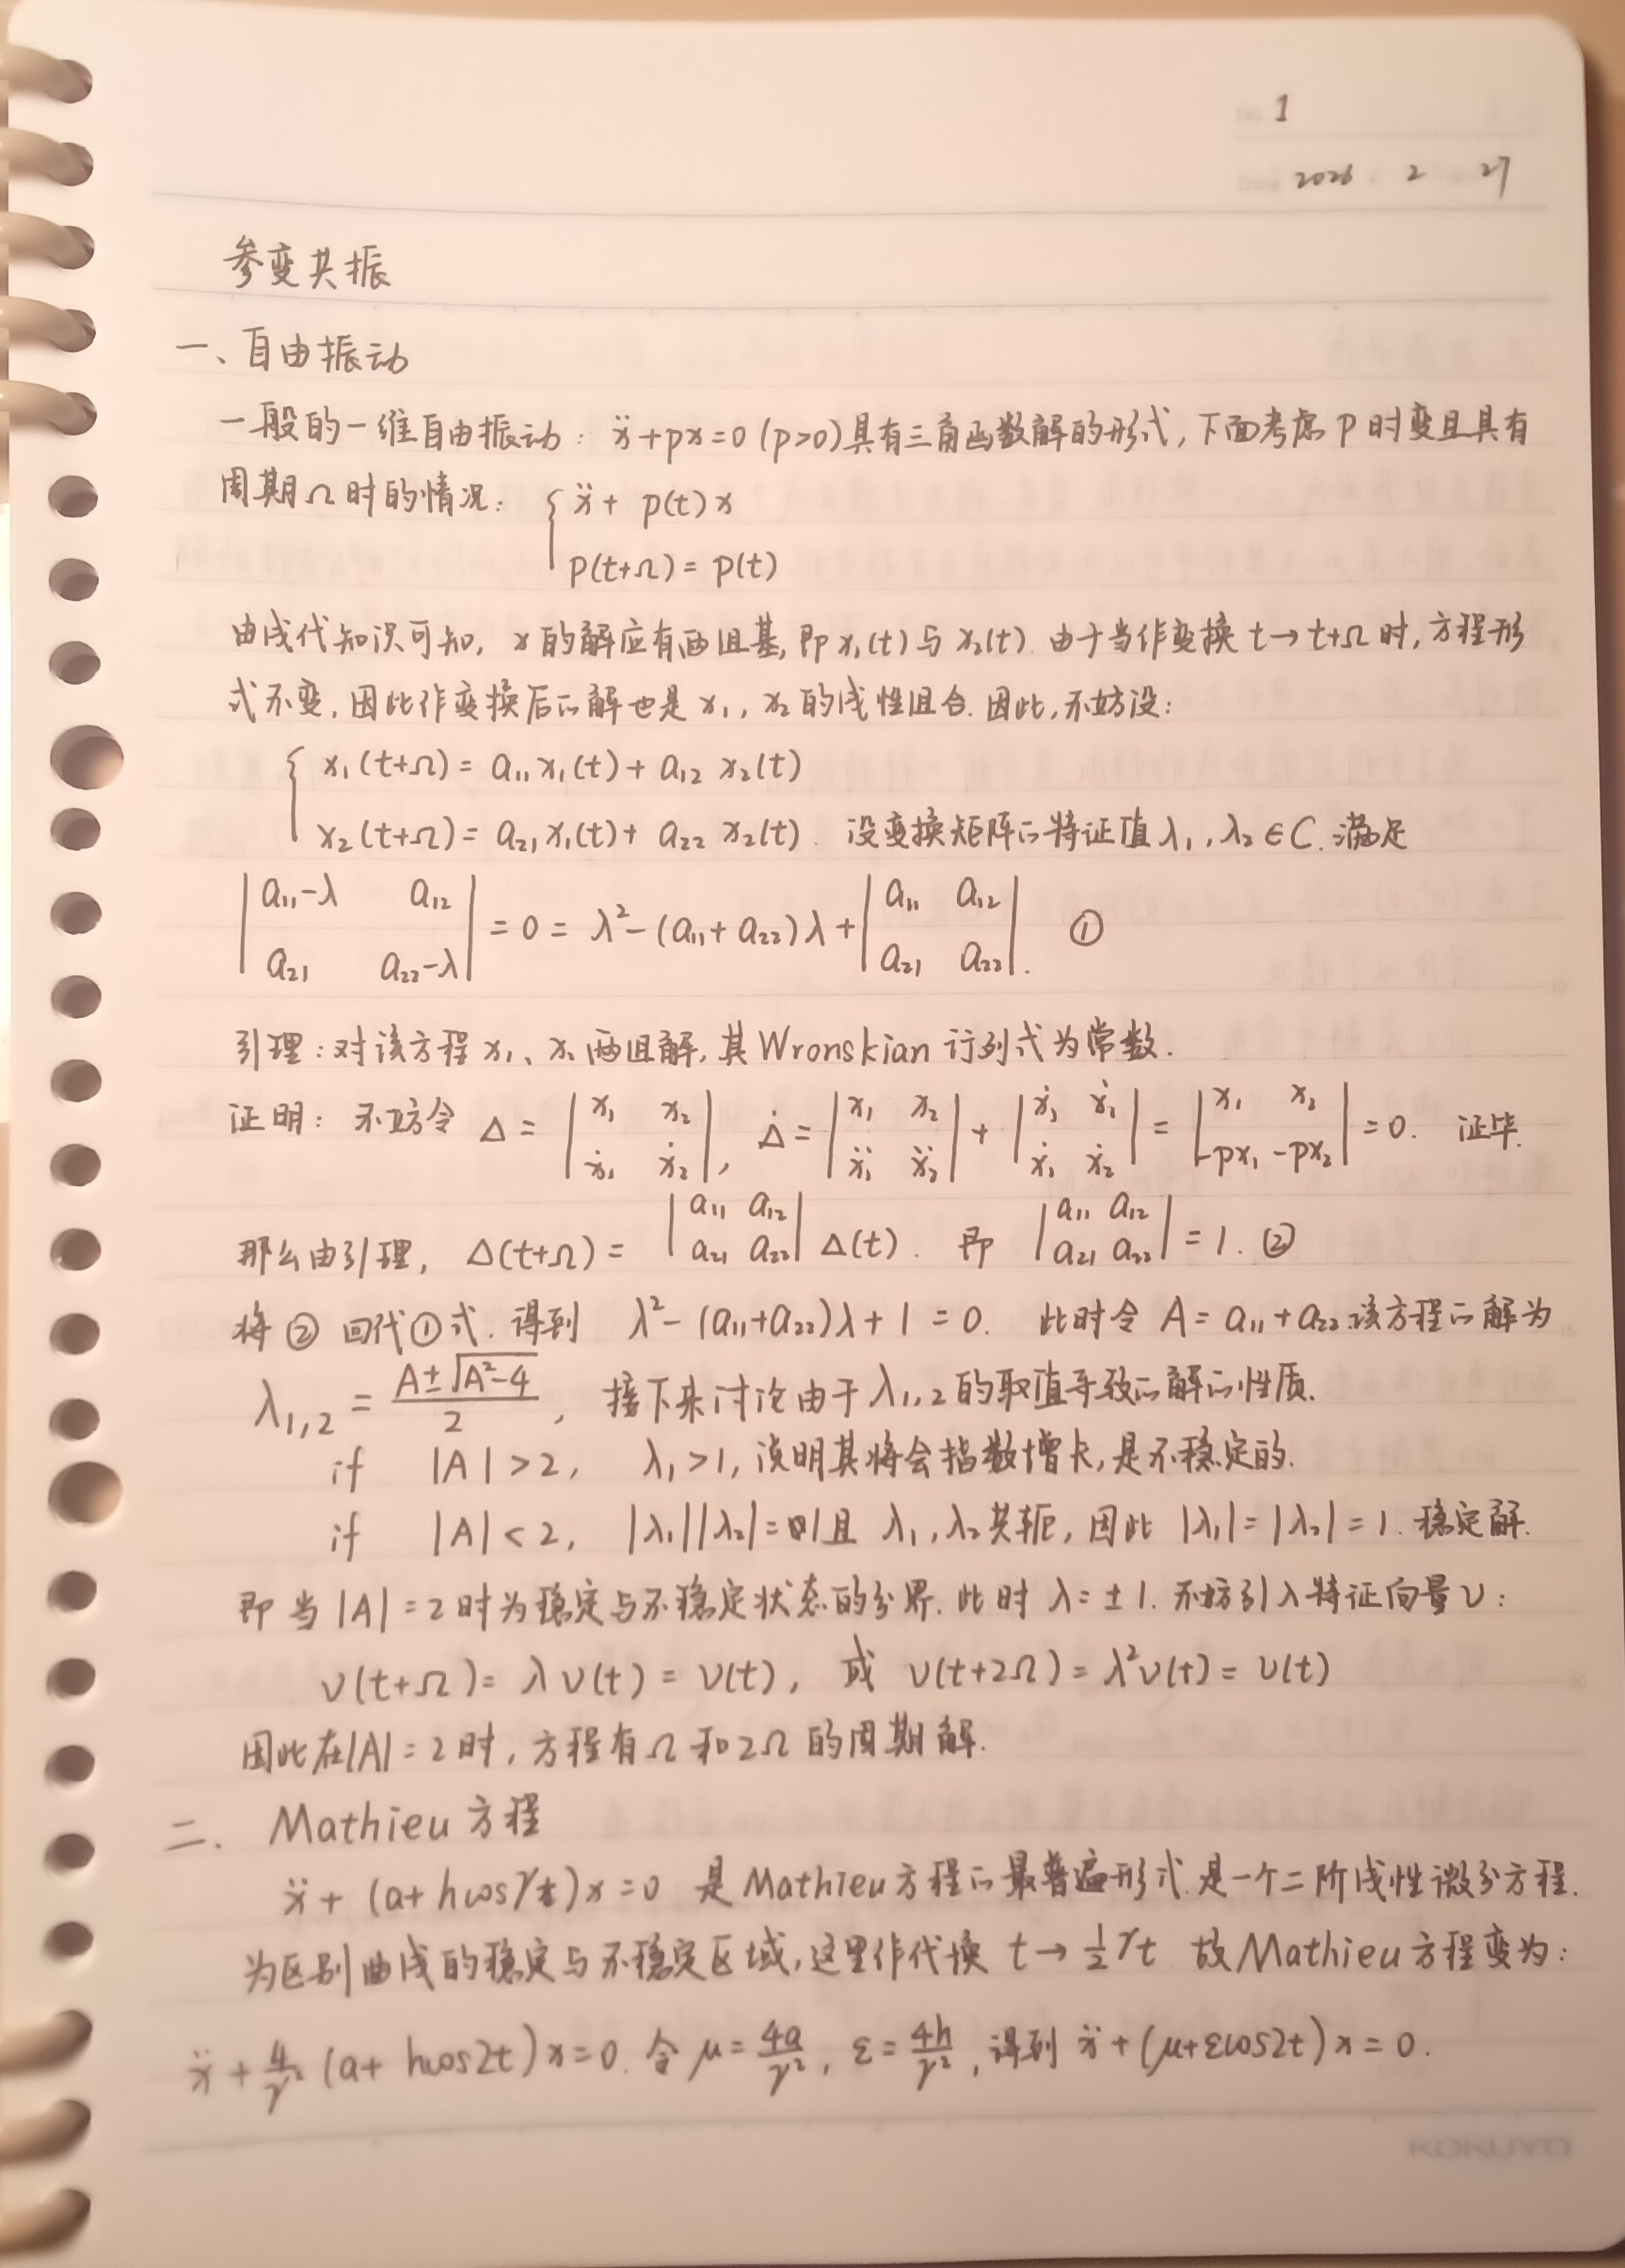 No. 1
Date 2026 . 2 27
参变共振
一、自由振动
一般的一维自由振动: ẍ+px=0 (p>0)具有三角函数解的形式, 下面考虑 p 时变且具有
周期Ω时的情况: { ẍ + p(t)x
p(t+Ω) = p(t)
由线代知识可知, x 的解应有两组基, 即 x₁(t) 与 x₂(t). 由于当作变换 t→t+Ω 时, 方程形
式不变, 因此作变换后の解也是 x₁, x₂ 的线性组合. 因此, 不妨设:
{ x₁(t+Ω) = a₁₁x₁(t) + a₁₂ x₂(t)
x₂(t+Ω) = a₂₁x₁(t) + a₂₂ x₂(t). 设变换矩阵の特征值 λ₁, λ₂ ∈ C. 满足
|a₁₁-λ a₁₂; a₂₁ a₂₂-λ| = 0 = λ² - (a₁₁+a₂₂)λ + |a₁₁ a₁₂; a₂₁ a₂₂|. ①
引理: 对该方程 x₁、x₂ 两组解, 其 Wronskian 行列式为常数.
证明: 不妨令 Δ = |x₁ x₂; ẋ₁ ẋ₂|, Δ̇ = |x₁ x₂; ẍ₁ ẍ₂| + |ẋ₁ ẋ₂; ẋ₁ ẋ₂| = |x₁ x₂; -px₁ -px₂| = 0. 证毕.
那么由引理, Δ(t+Ω) = |a₁₁ a₁₂; a₂₁ a₂₂| Δ(t). 即 |a₁₁ a₁₂; a₂₁ a₂₂| = 1. ②
将②回代①式. 得到 λ² - (a₁₁+a₂₂)λ + 1 = 0. 此时令 A = a₁₁+a₂₂ 该方程の解为
λ₁,₂ = (A±√(A²-4))/2, 接下来讨论由于 λ₁,₂ 的取值导致の解の性质.
if |A| > 2, λ₁ > 1, 说明其将会指数增长, 是不稳定的.
if |A| < 2, |λ₁||λ₂| = 1 且 λ₁, λ₂ 共轭, 因此 |λ₁| = |λ₂| = 1. 稳定解.
即当 |A| = 2 时为稳定与不稳定状态的分界. 此时 λ = ±1. 不妨引入特征向量 ν:
ν(t+Ω) = λν(t) = ν(t), 或 ν(t+2Ω) = λ²ν(t) = ν(t)
因此在|A| = 2 时, 方程有 Ω 和 2Ω 的周期解.
二. Mathieu 方程
ẍ + (a + hcosγt)x = 0 是 Mathieu 方程の最普遍形式. 是一个二阶线性微分方程.
为区别曲线的稳定与不稳定区域, 这里作代换 t→½γt 故 Mathieu 方程变为:
ẍ + 4/γ² (a + hcos2t)x = 0. 令 μ = 4a/γ², ε = 4h/γ², 得到 ẍ + (μ+εcos2t)x = 0.
KOKUYO